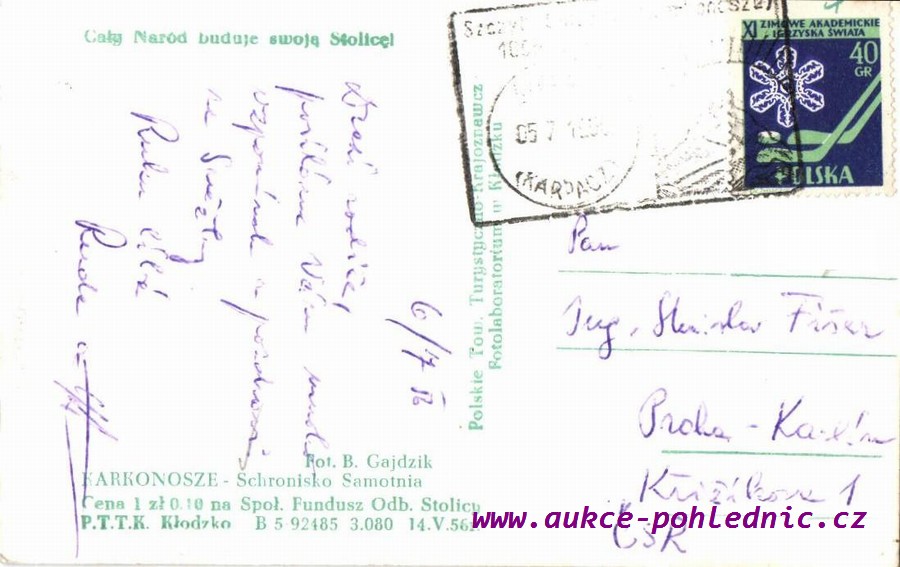 Cały Naród buduje swoją Stolicę!
6/7 56
Drazí rodiče,
posíláme Vám mnoho
vzpomínek a pozdravů
ze Sněžky
Ruda
Fot. B. Gajdzik
KARKONOSZE - Schronisko Samotnia
Cena 1 zł 0.10 na Społ. Fundusz Odb. Stolicy
P.T.T.K. Kłodzko B 5 92485 3.080 14.V.56r.
Polskie Tow. Turystyczno-Krajoznawcz
Fotolaboratorium w Kłodzku
05 7
KARPACZ
XI ZIMOWE AKADEMICKIE
IGRZYSKA ŚWIATA
40
GR
POLSKA
Pan
Ing. Stanislav Fišer
Praha - Karlín
Křižíkova 1
ČSR
www.aukce-pohlednic.cz